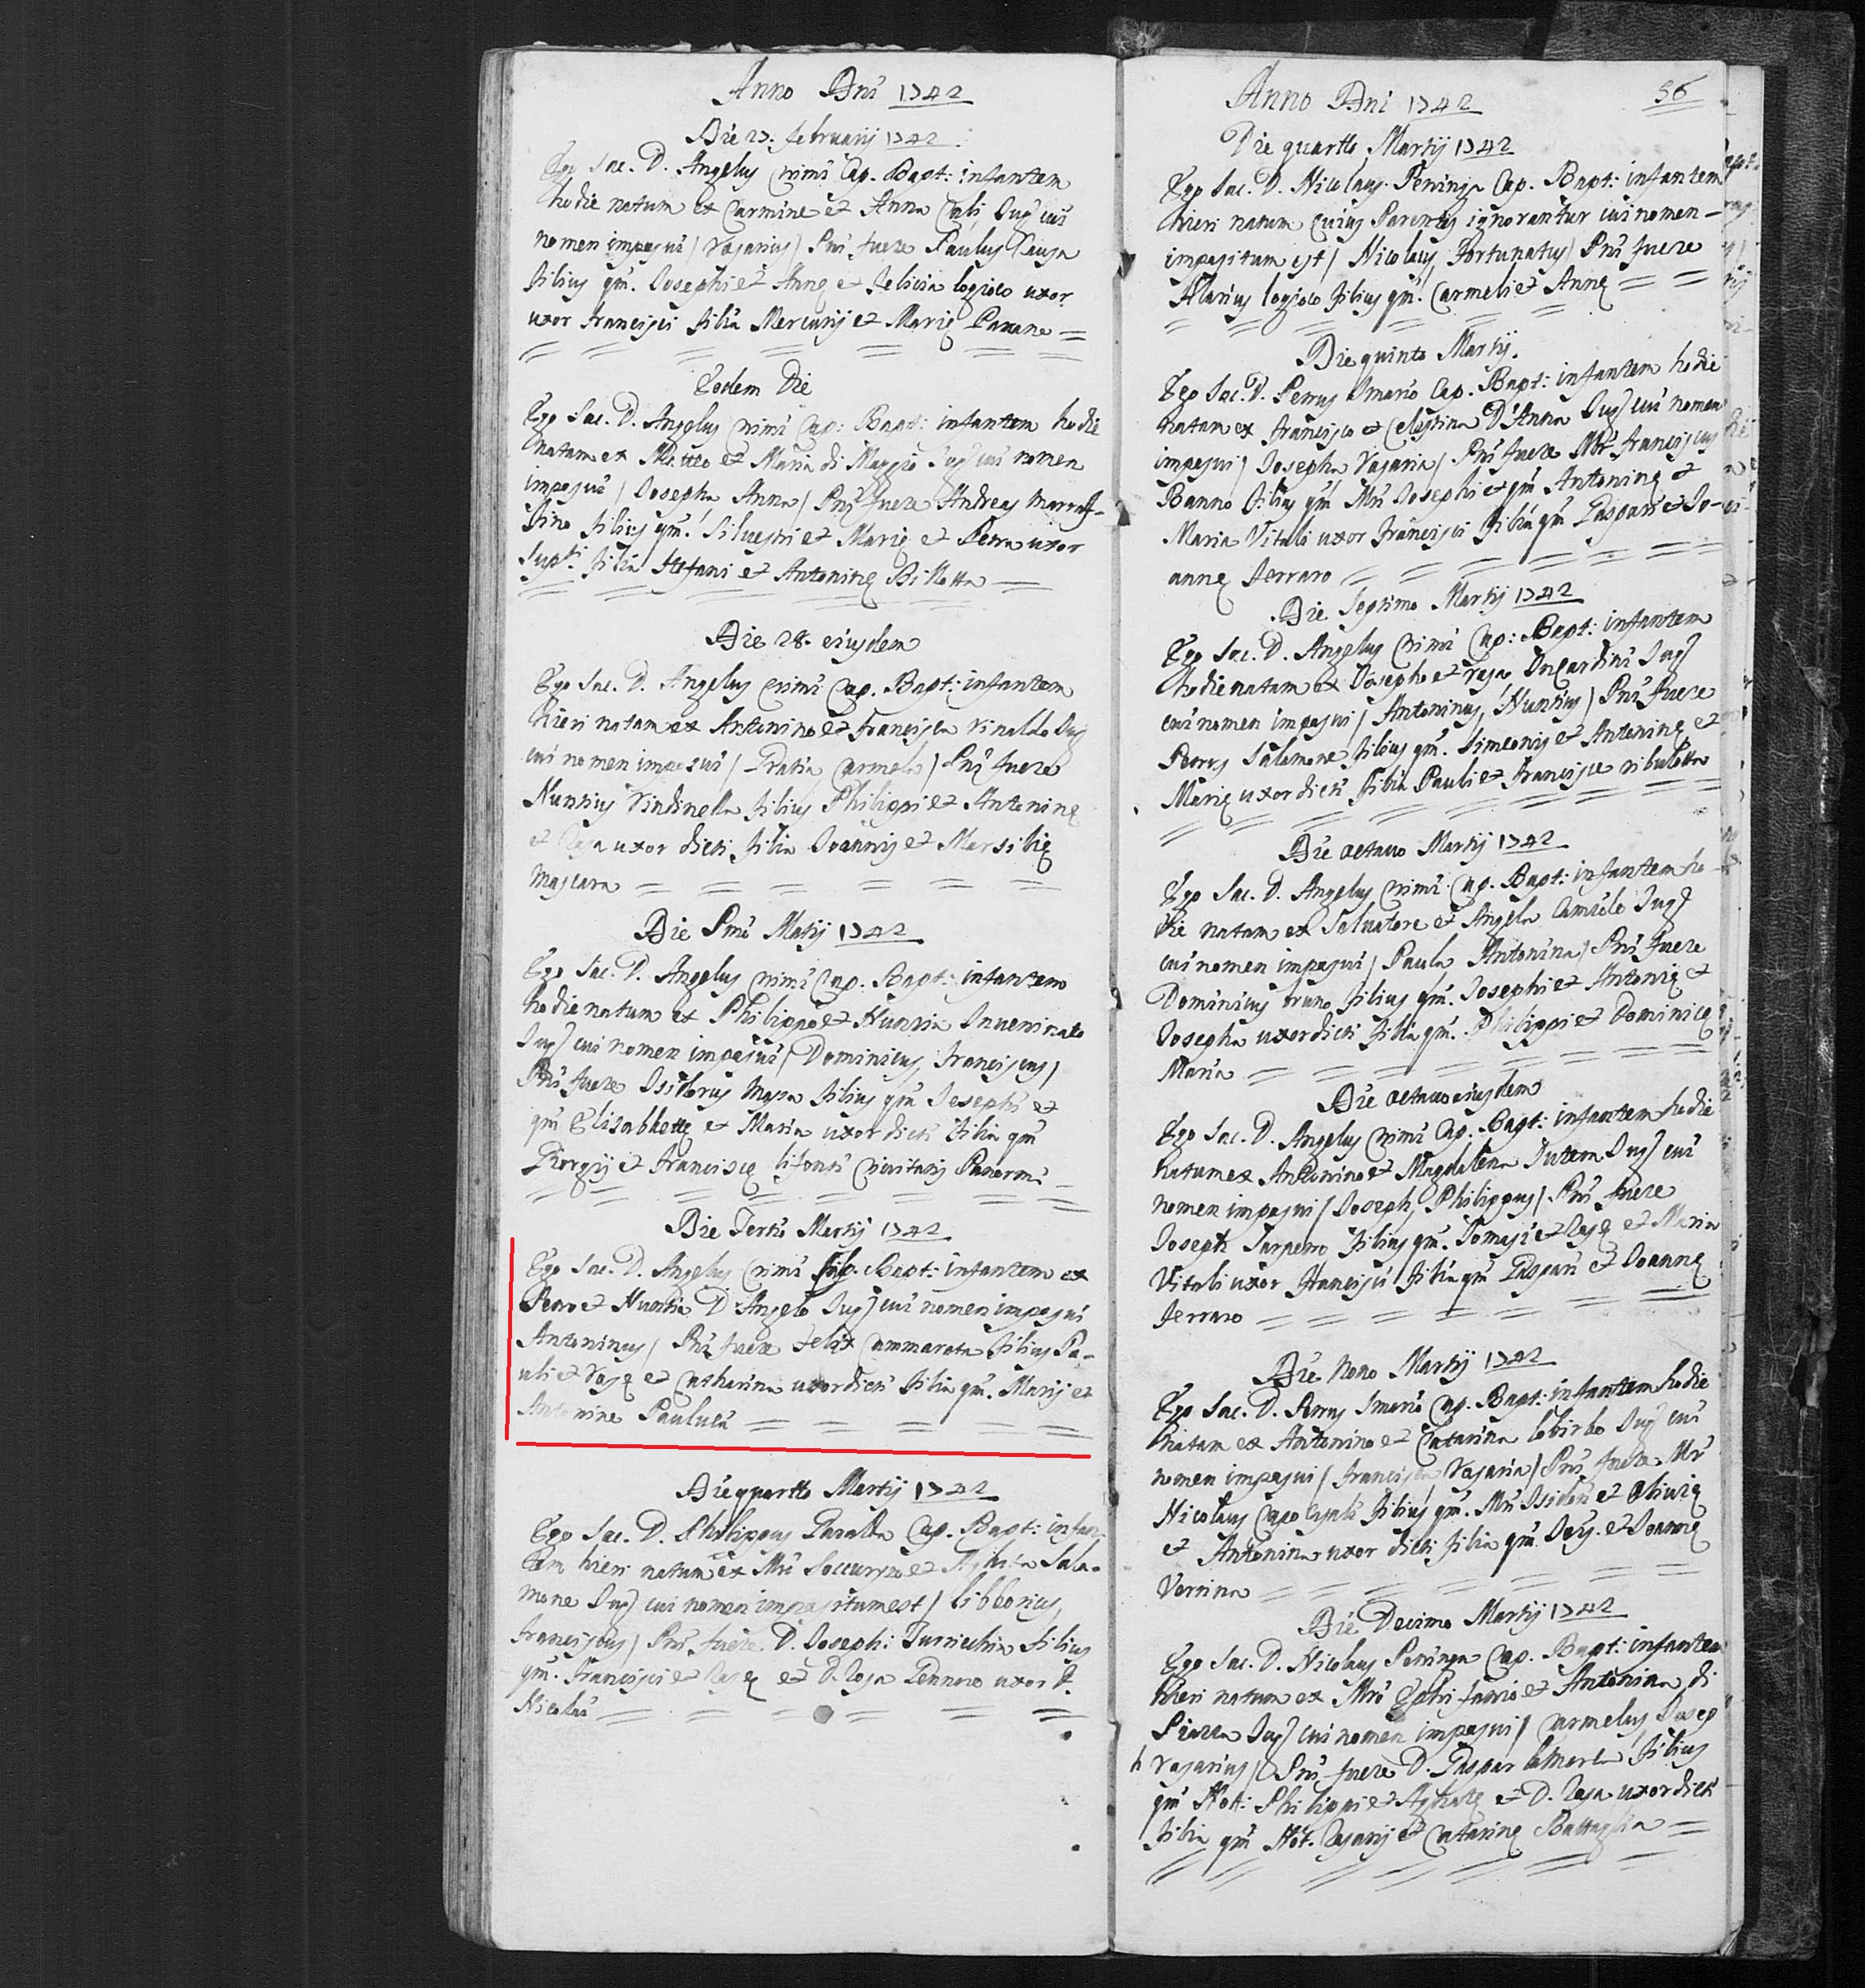 Anno Dni 1742
Die 27. februarij 1742
Ego Sac. D. Angelus Crimi Cap. Bapt: infantem
hodie natum ex Carmine et Anna Cali Jug. cui
nomen imposui / Rosarius / Pni fuere Paulus Causa
filius qm. Josephi et Annę et Felicia logioco uxor
uxor francisci filia Mercurij et Marię Panano =
Eodem Die
Ego Sac. D. Angelus Crimi Cap: Bapt: infantem hodie
natam ex Matteo et Maria di Maggio Jug. cui nomen
imposui / Josepha Anna / Pni fuere Andreas
filius qm. Silvestri et Marię et Petra uxor
supti. filia Stefani et Antoninę Billotta
Die 28. eiusdem
Ego Sac. D. Angelus Crimi Cap. Bapt: infantem
hieri natam ex Antonino et francisca rinaldo Jug
cui nomen imposui / Gratia Carmela / Pni fuere
Nuntius Vindinella filius Philippi et Antoninę
et Rosa uxor dicti filia Joannis et Marsilię
Mascara
Die Pmo Martij 1742
Ego Sac. D. Angelus Crimi Cap. Bapt: infantem
hodie natum ex Philippo et Nuntia Inveninato
Jug. cui nomen imposui / Dominicus, franciscus /
Pni fuere Isidorus Massa filius qm Josephi et
qm Elisabhettę et Maria uxor dicti filia qm
Giorgij et Franciscę lifonti civitatis Panormi
Die Tertio Martij 1742
Ego Sac. D. Angelus Crimi Cap. Bapt: infantem ex
Petro et Nuntia D'Angelo Jug. cui nomen imposui
Antoninus / Pni fuere Felix Cammarata filius Pa-
uli et Rosę et Catharina uxor dicti filia qm. Marij et
Antonine Paulucci
Die quarto Martij 1742
Ego Sac. D. Philippus Cap. Bapt: infan-
tem hieri natum ex Mro Soccurzo et Aghata Sala-
mone Jug. cui nomen impositum est / Libborius,
franciscus / Pni fuere D. Joseph: Turricchia filius
qm. Francisci et Rosę et D. Rosa Gennaro uxor D.
Nicolai
Anno Dni 1742
56
Die quarto Martij 1742
Ego Sac. D. Nicolaus Peninga Cap. Bapt: infantem
hieri natum cuius Parentes ignorantur cui nomen
impositum est / Nicolaus, Fortunatus / Pni fuere
Ilarius logioco filius qm. Carmeli et Annę
Die quinto Martij.
Ego Sac. D. Petrus Imario Cap. Bapt: infantem hodie
natam ex francisco et Celestina D'Anna Jug. cui nomen
imposui / Josepha Rosaria / Pni fuere Mr. franciscus
Banno filius qm Mri Josephi et qm Antoninę et
Maria Vitali uxor francisci filia qm Gaspari et Jo-
annę ferraro
Die Septimo Martij 1742
Ego Sac. D. Angelus Crimi Cap: Bapt: infantem
hodie natum ex Josepho et rosa Ingardini Jug.
cui nomen imposui / Antoninus, Nuntius / Pni fuere
Petrus Salamone filius qm. Simeonis et Antoninę et
Maria uxor dicti filia Pauli et francisce ribulotta
Die octavo Martij 1742
Ego Sac. D. Angelus Crimi Cap. Bapt: infantem ho-
die natam ex Salvatore et Angela Camiolo Jug.
cui nomen imposui / Paula Antonina / Pni fuere
Dominicus bruno filius qm. Josephi et Antonię et
Josepha uxor dicti filia qm. Philippi et Dominicę
Maria
Die octavo eiusdem
Ego Sac. D. Angelus Crimi Cap. Bapt: infantem hodie
natum ex Antonino et Magdalena Jug. cui
nomen imposui / Joseph, Philippus / Pni fuere
Joseph filius qm. Tomasi et Rosę et Maria
Vitali uxor Francisci filia qm Gaspari et Joannę
ferraro
Die Nono Martij 1742
Ego Sac. D. Petrus Imario Cap. Bapt: infantem hodie
natam ex Antonino et Catarina lobirbo Jug. cui
nomen imposui / francisca Rosaria / Pni fuere Mr
Nicolaus filius qm. Mri Isidori et Olivię
et Antonina uxor dicti filia qm. et Joannę
Verrina
Die Decimo Martij 1742
Ego Sac. D. Nicolaus Peninga Cap. Bapt: infantem
hieri natum ex Mro et Antonina di
Piazza Jug. cui nomen imposui / Carmelus, Josep
h Rosarius / Pni fuere D. Gaspar filius
qm Not: Philippi et Aghatę et D. Rosa uxor dicti
filia qm Not. Rosarij et Catarinę Battaglia